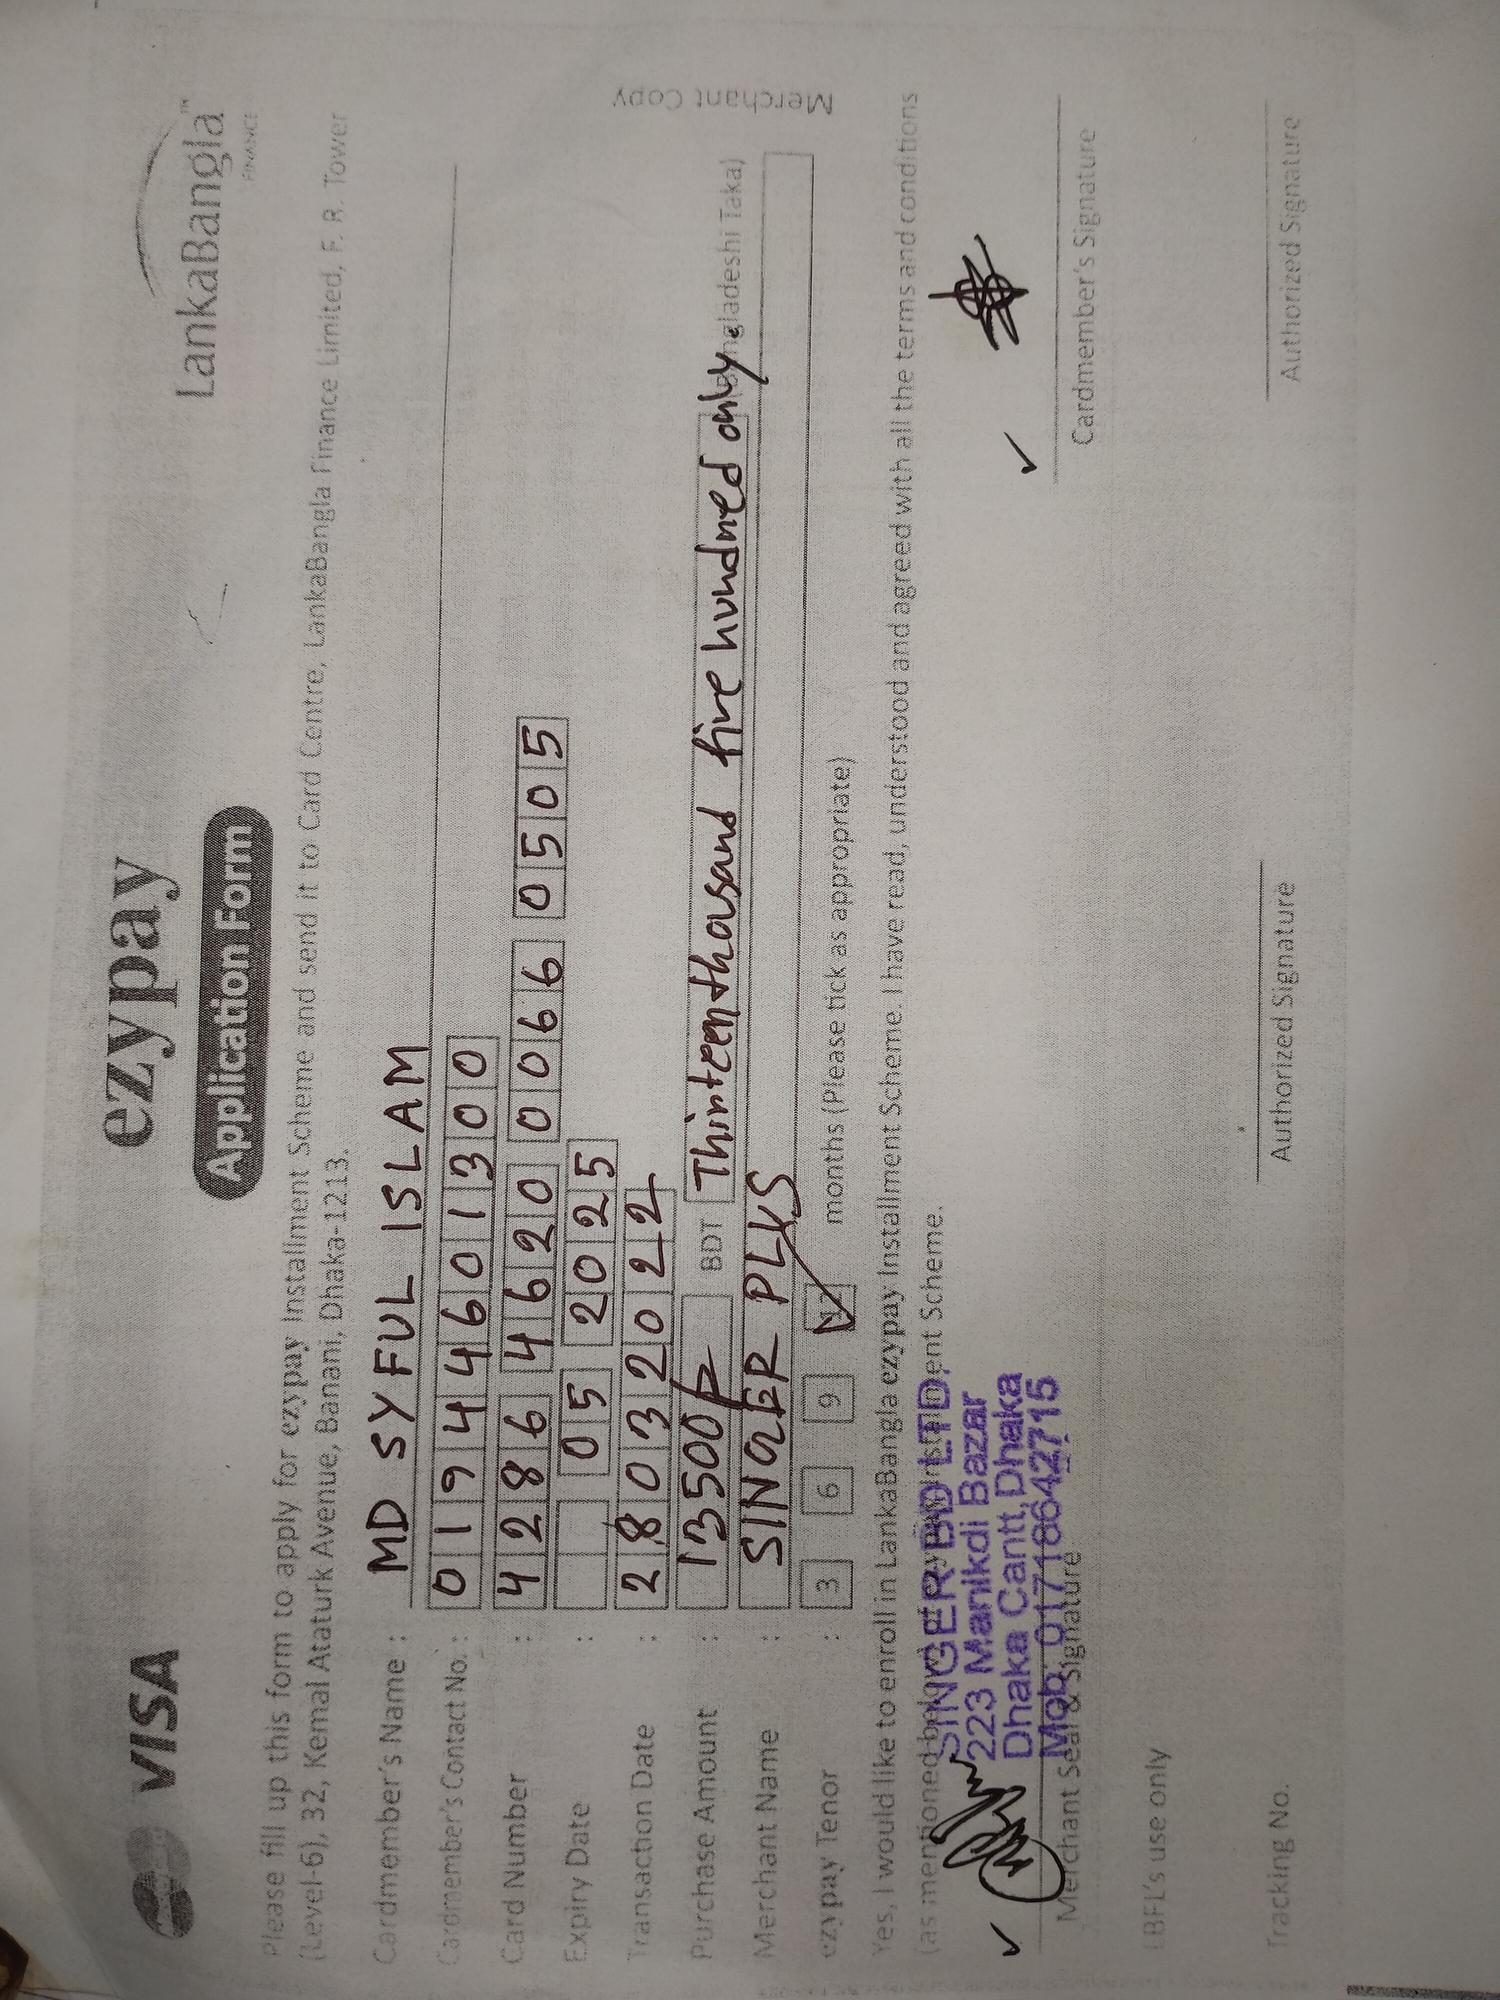 VISA
ezypay
LankaBangla™
FINANCE
Application Form
Please fill up this form to apply for ezypay Installment Scheme and send it to Card Centre, LankaBangla Finance Limited, F. R. Tower
(Level-6), 32, Kemal Ataturk Avenue, Banani, Dhaka-1213.
Cardmember's Name : MD SYFUL ISLAM
Cardmember's Contact No. : 01944601300
Card Number : 4286 4620 0066 0505
Expiry Date : 05 2025
Transaction Date : 28032022
Purchase Amount : 13500/- BDT Thirteen thousand five hundred only. (Bangladeshi Taka)
Merchant Name : SINGER PLUS
ezypay Tenor : 3 6 9 months (Please tick as appropriate)
Merchant Copy
Yes, I would like to enroll in LankaBangla ezypay Installment Scheme. I have read, understood and agreed with all the terms and conditions
(as mentioned below) of ezypay Installment Scheme.
SINGER BD LTD.
223 Manikdi Bazar
Dhaka Cantt, Dhaka
Mob: 01718642715
Merchant Seal & Signature
Cardmember's Signature
LBFL's use only
Tracking No.
Authorized Signature
Authorized Signature